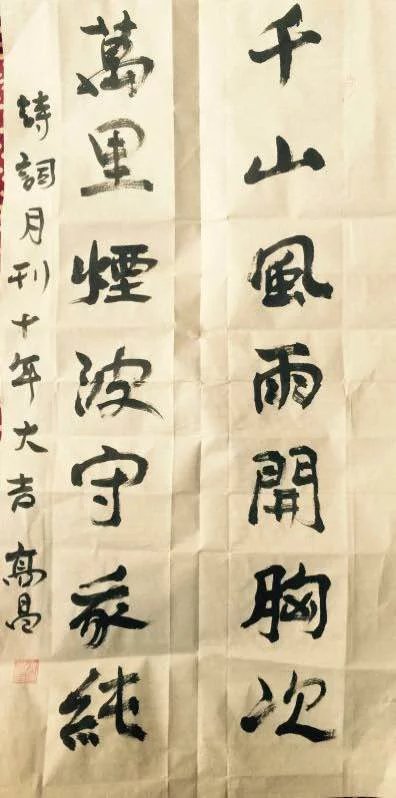 千山風雨開胸次
萬里煙波守我純
詩詞月刊十年大吉 高昌